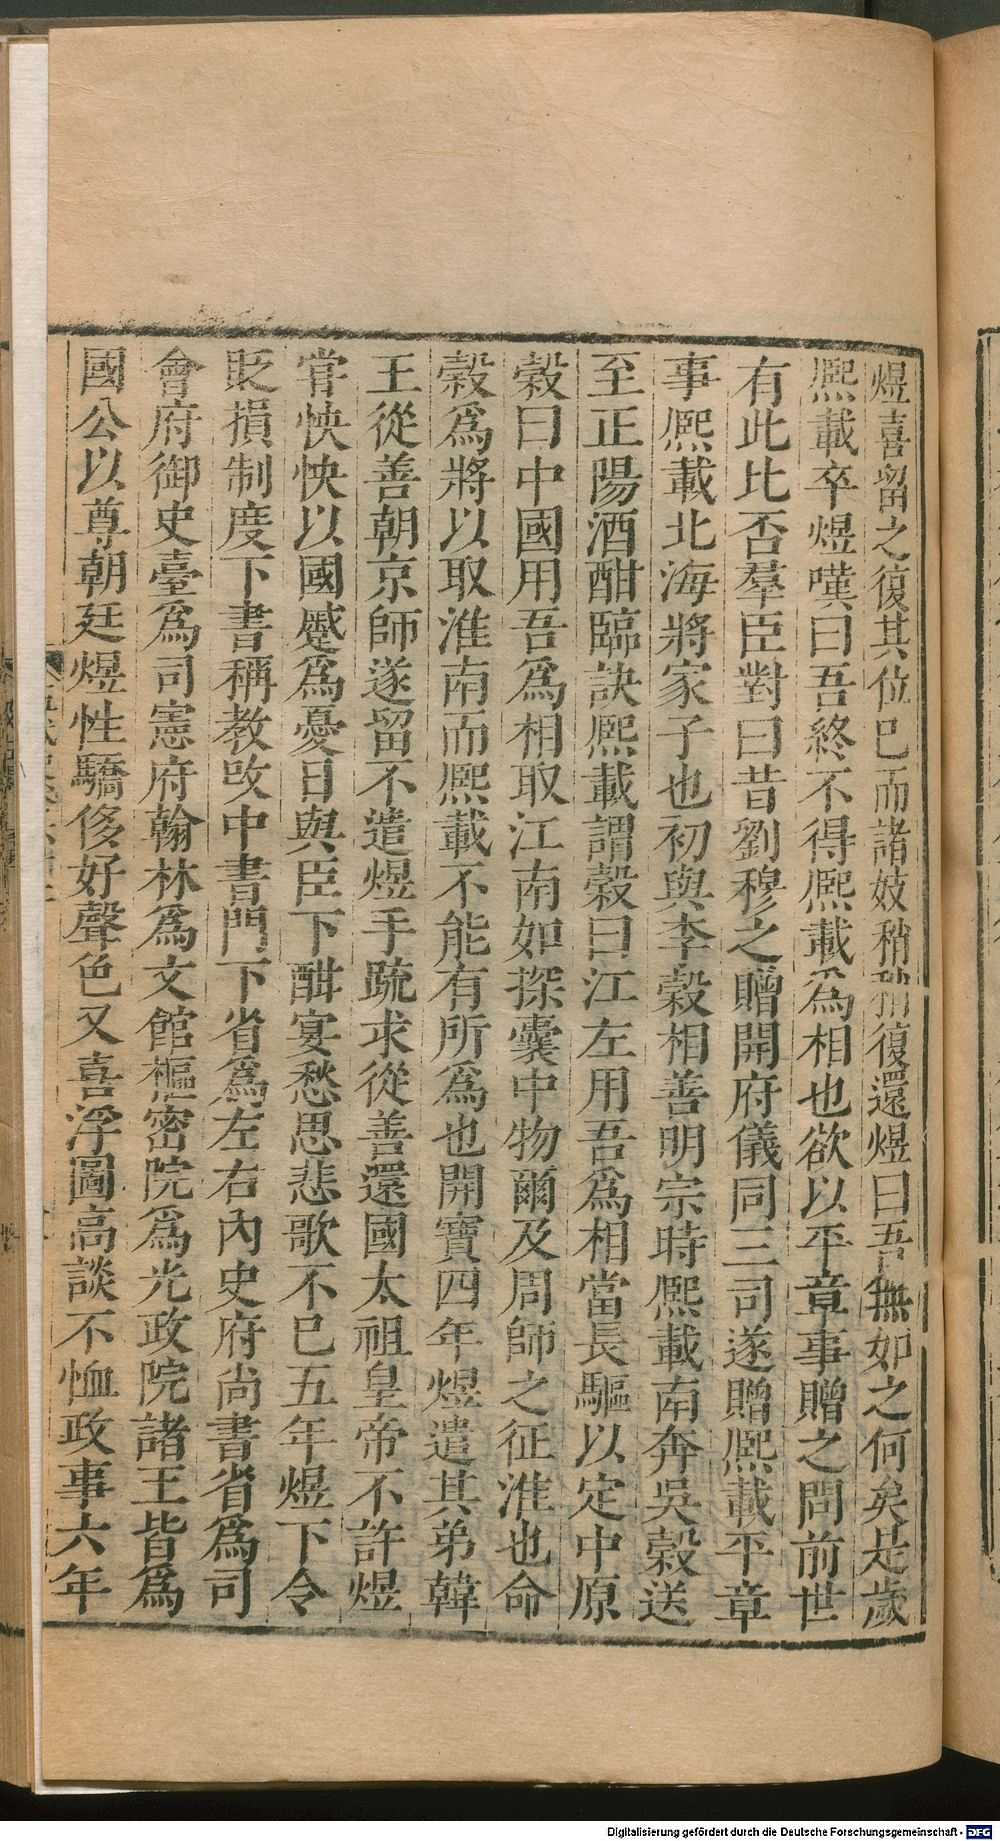 煜喜留之復其位已而諸妓稍稍復還煜曰吾無如之何矣是歲
熈載卒煜嘆曰吾終不得熈載為相也欲以平章事贈之問前世
有此比否羣臣對曰昔劉穆之贈開府儀同三司遂贈熈載平章
事熈載北海將家子也初與李穀相善明宗時熈載南奔吳穀送
至正陽酒酣臨訣熈載謂穀曰江左用吾為相當長驅以定中原
穀曰中國用吾為相取江南如探囊中物爾及周師之征淮也命
穀為將以取淮南而熈載不能有所為也開寶四年煜遣其弟韓
王從善朝京師遂留不遣煜手疏求從善還國太祖皇帝不許煜
嘗怏怏以國蹙為憂日與臣下酣宴愁思悲歌不已五年煜下令
貶損制度下書稱教改中書門下省為左右內史府尚書省為司
會府御史臺為司憲府翰林為文館樞密院為光政院諸王皆為
國公以尊朝廷煜性驕侈好聲色又喜浮圖高談不恤政事六年
Digitalisierung gefördert durch die Deutsche Forschungsgemeinschaft - DFG